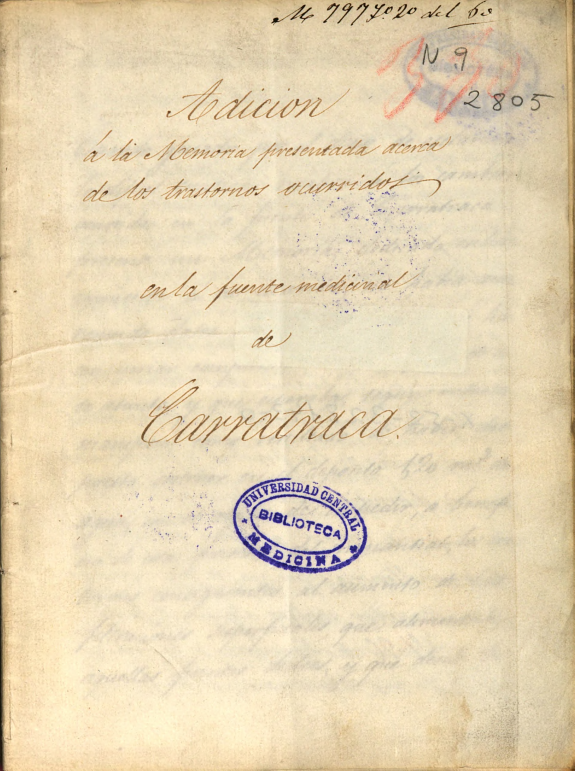 N 9
2805
Adicion
á la Memoria presentada acerca
de los trastornos ocurridos
en la fuente medicinal
de
Carratraca.
UNIVERSIDAD CENTRAL
BIBLIOTECA
MEDICINA